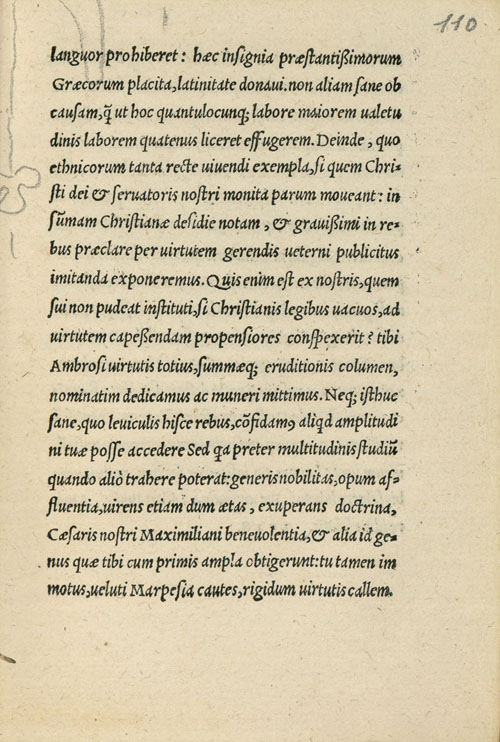 110
languor prohiberet: hæc insignia præstantißimorum
Græcorum placita, latinitate donaui. non aliam sane ob
causam, q̃ ut hoc quantulocunq; labore maiorem ualetu
dinis laborem quatenus liceret effugerem. Deinde, quo
ethnicorum tanta recte uiuendi exempla, si quem Chri-
sti dei & seruatoris nostri monita parum moueant: in
sũmam Christianæ desidie notam, & grauißimi in re-
bus præclare per uirtutem gerendis ueterni publicitus
imitanda exponeremus. Quis enim est ex nostris, quem
sui non pudeat instituti, si Christianis legibus uacuos, ad
uirtutem capeßendam propensiores conspexerit? tibi
Ambrosi uirtutis totius, summæq; eruditionis columen,
nominatim dedicamus ac muneri mittimus. Neq; isthuc
sane, quo leuiculis hisce rebus, cõfidamꝰ aliqd amplitudi
ni tuæ posse accedere Sed qa preter multitudinis studiũ
quando aliò trahere poterat: generis nobilitas, opum af-
fluentia, uirens etiam dum ætas, exuperans doctrina,
Cæsaris nostri Maximiliani beneuolentia, & alia id ge-
nus quæ tibi cum primis ampla obtigerunt: tu tamen im
motus, ueluti Marpesia cautes, rigidum uirtutis callem.